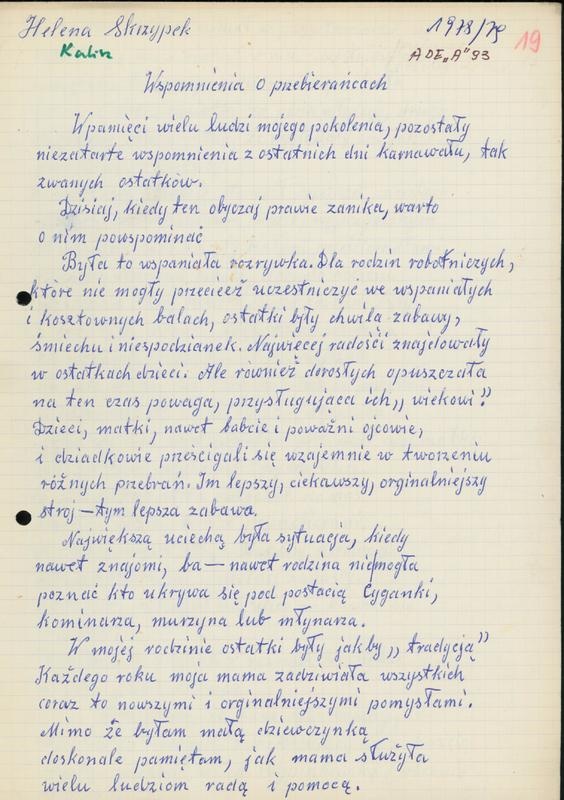 Helena Skrzypek
1978/79
19
Kalisz
ADE „A” 93
Wspomnienia o przebierańcach
W pamięci wielu ludzi mojego pokolenia, pozostały
niezatarte wspomnienia z ostatnich dni karnawału, tak
zwanych ostatków.
Dzisiaj, kiedy ten obyczaj prawie zanika, warto
o nim powspominać
Była to wspaniała rozrywka. Dla rodzin robotniczych,
które nie mogły przecież uczestniczyć we wspaniałych
i kosztownych balach, ostatki były chwilą zabawy,
śmiechu i niespodzianek. Najwięcej radości znajdowały
w ostatkach dzieci. Ale również dorosłych opuszczała
na ten czas powaga, przysługująca ich „wiekowi”.
Dzieci, matki, nawet babcie i poważni ojcowie,
i dziadkowie prześcigali się wzajemnie w tworzeniu
różnych przebrań. Im lepszy, ciekawszy, orginalniejszy
strój – tym lepsza zabawa.
Największą uciechą była sytuacja, kiedy
nawet znajomi, ba — nawet rodzina nie mogła
poznać kto ukrywa się pod postacią Cyganki,
kominarza, murzyna lub młynarza.
W mojej rodzinie ostatki były jakby „tradycją”
Każdego roku moja mama zadziwiała wszystkich
coraz to nowszymi i orginalniejszymi pomysłami.
Mimo że byłam małą dziewczynką
doskonale pamiętam, jak mama służyła
wielu ludziom radą i pomocą.